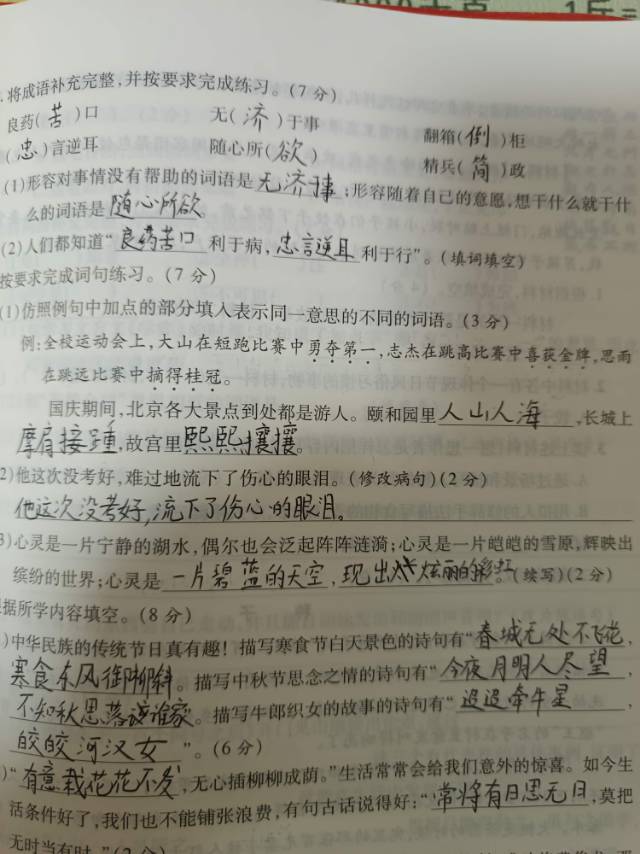 .将成语补充完整,并按要求完成练习。(7分)
良药(苦)口 无(济)于事 翻箱(倒)柜
(忠)言逆耳 随心所(欲) 精兵(简)政
(1)形容对事情没有帮助的词语是无济事;形容随着自己的意愿,想干什么就干什
么的词语是随心所欲
(2)人们都知道“良药苦口利于病,忠言逆耳利于行”。(填词填空)
按要求完成词句练习。(7分)
(1)仿照例句中加点的部分填入表示同一意思的不同的词语。(3分)
例:全校运动会上,大山在短跑比赛中勇夺第一,志杰在跳高比赛中喜获金牌,思雨
在跳远比赛中摘得桂冠。
国庆期间,北京各大景点到处都是游人。颐和园里人山人海,长城上
摩肩接踵,故宫里熙熙攘攘。
2)他这次没考好,难过地流下了伤心的眼泪。(修改病句)(2分)
他这次没考好,流下了伤心的眼泪。
3)心灵是一片宁静的湖水,偶尔也会泛起阵阵涟漪;心灵是一片皑皑的雪原,辉映出
缤纷的世界;心灵是一片碧蓝的天空,现出炫丽的彩虹。(续写)(2分)
据所学内容填空。(8分)
)中华民族的传统节日真有趣!描写寒食节白天景色的诗句有“春城无处不飞花,
寒食东风御柳斜。描写中秋节思念之情的诗句有“今夜月明人尽望,
不知秋思落谁家。描写牛郎织女的故事的诗句有“迢迢牵牛星,
皎皎河汉女”。(6分)
)“有意栽花花不发,无心插柳柳成荫。”生活常常会给我们意外的惊喜。如今生
活条件好了,我们也不能铺张浪费,有句古话说得好:“常将有日思无日,莫把
无时当有时。”(2分)